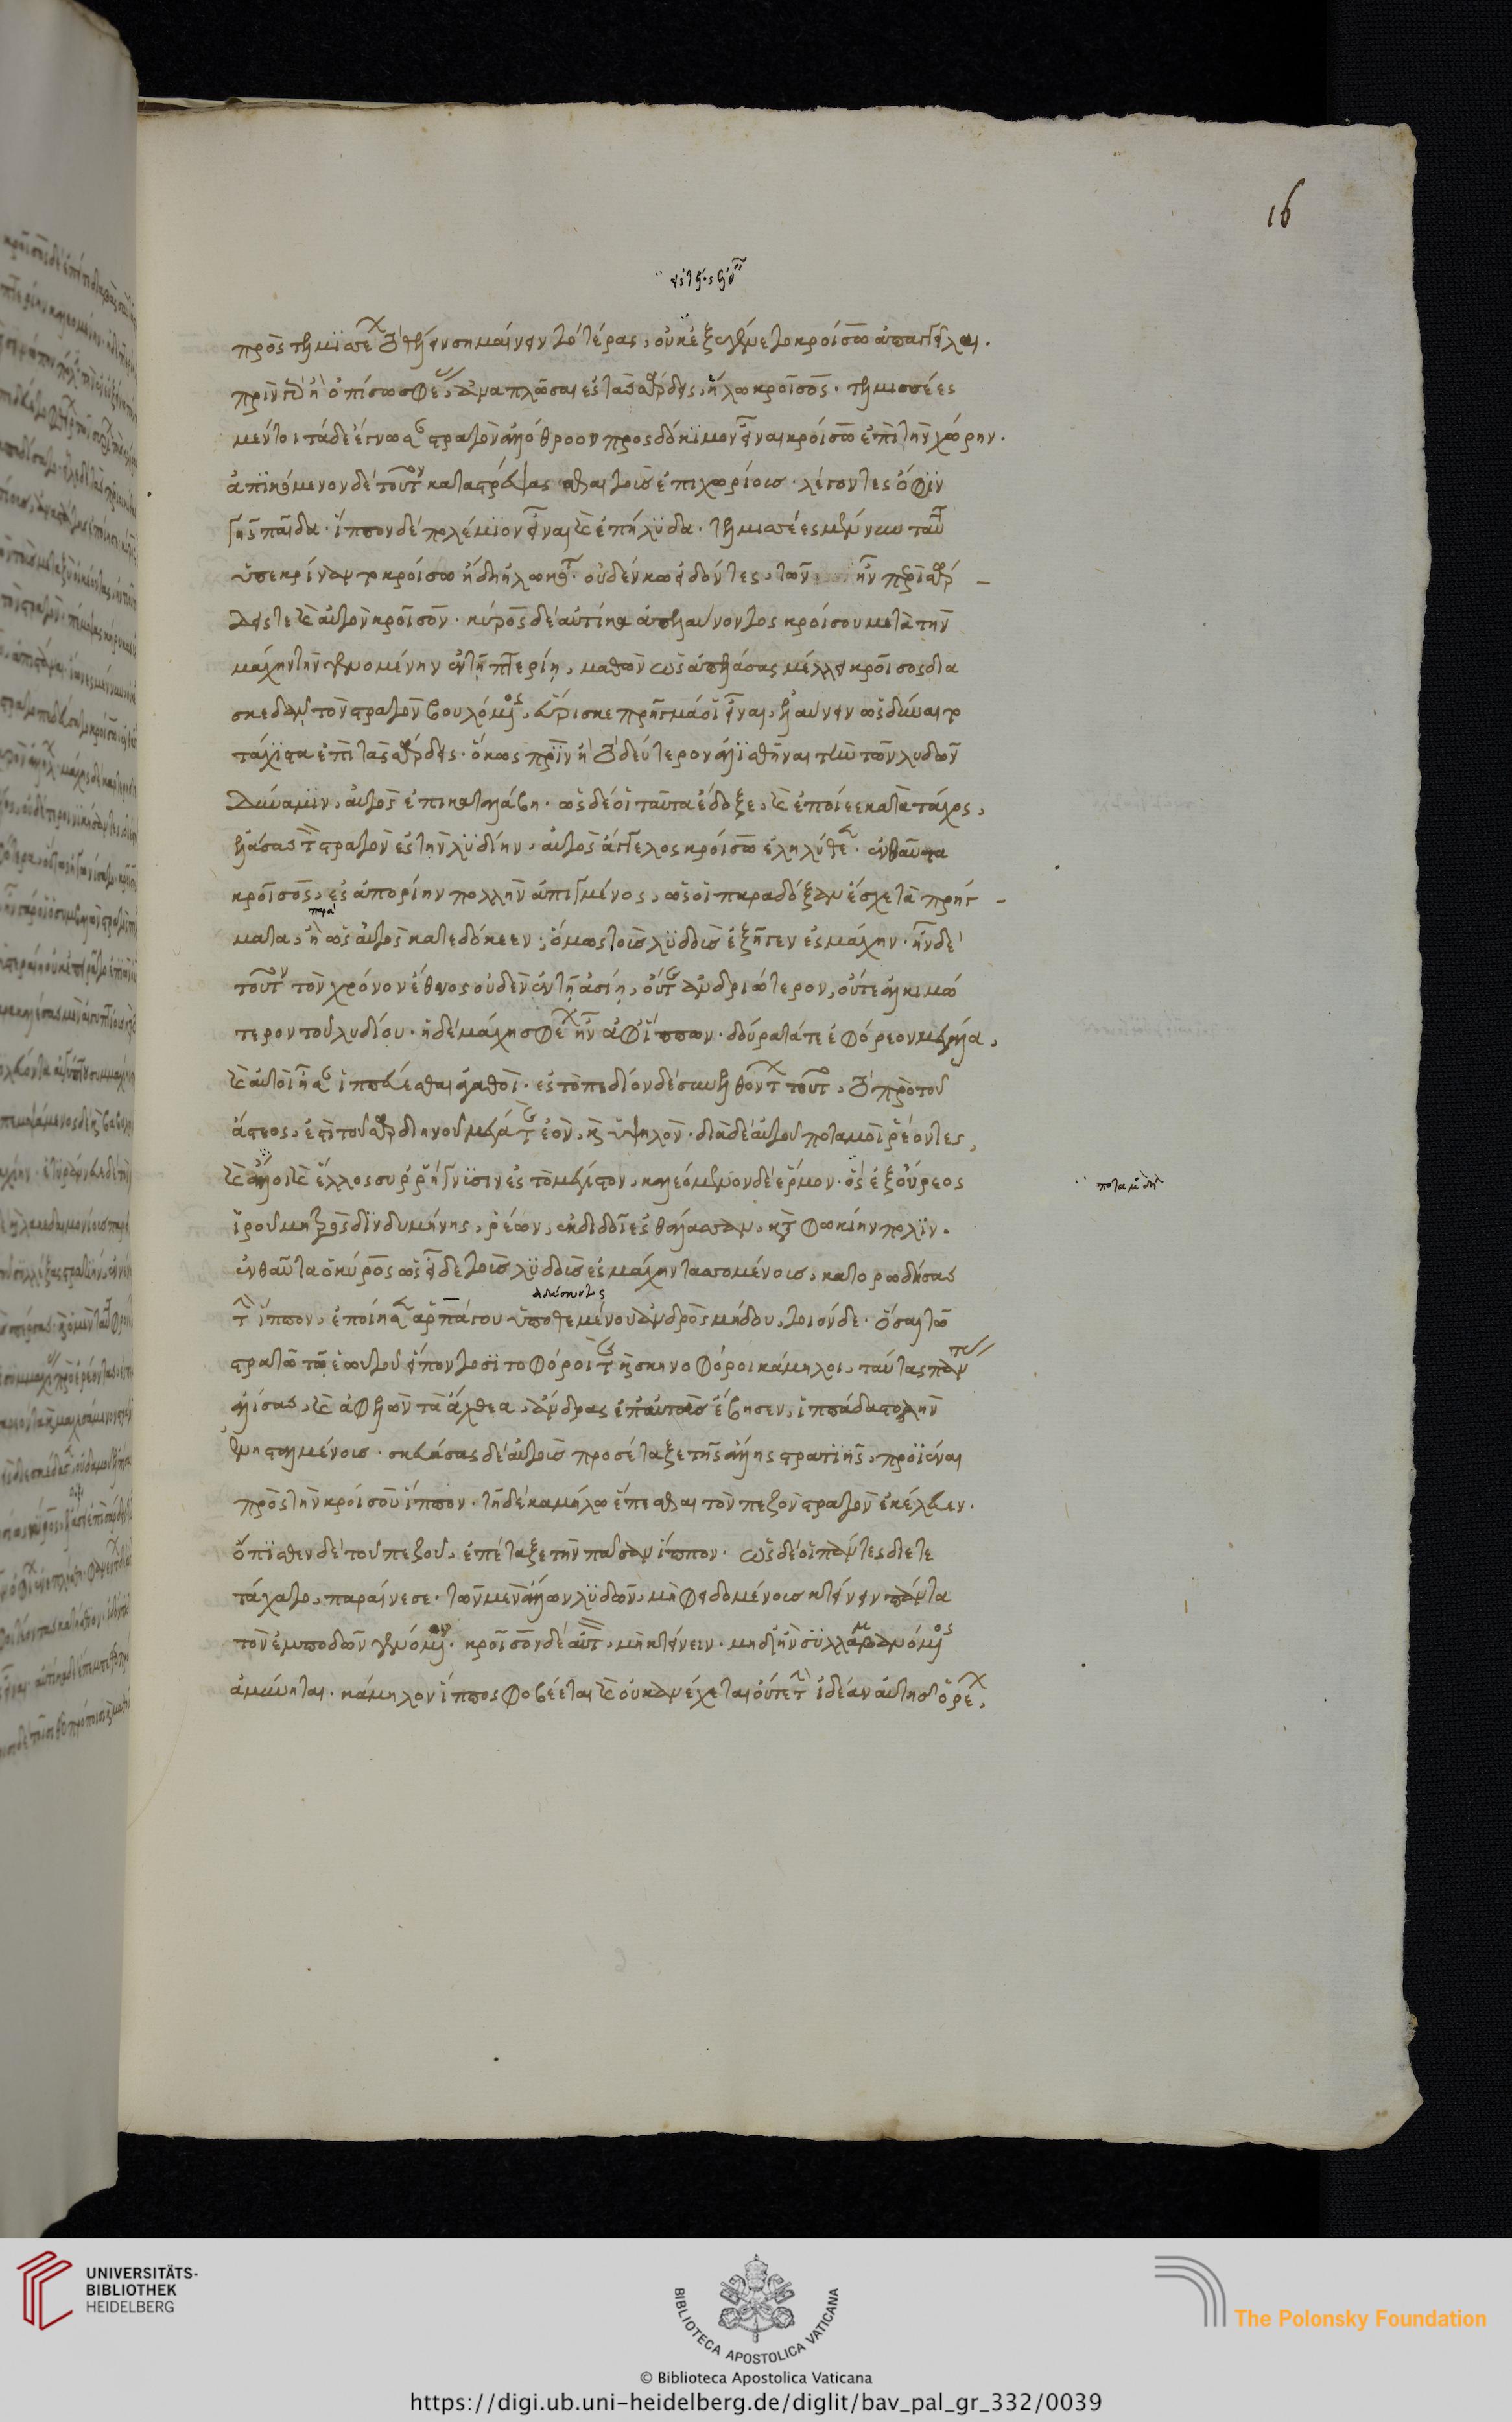 16
πρὸς τελμισσέων τὸ θέλειν σημαίνειν τὸ τέρας, οὐκ ἐξεγένετο κροίσω ἀπαγγεῖλαι.
πρὶν γὰρ ἢ ὀπίσω σφέας ἀναπλῶσαι ἐς τὰς σάρδεις, ἥλω κροῖσος. τελμισσέες
μέντοι τάδε ἔγνωσαν στρατὸν ἀλλόθροον προσδόκιμον εἶναι κροίσω ἐπὶ τὴν χώρην.
ἀπικόμενον δὲ τοῦτον καταστρέψασθαι τοῖς ἐπιχωρίοις. λέγοντες ὄφιν
γῆς παῖδα. ἵππον δὲ πολέμιον εἶναι καὶ ἐπήλυδα. τελμισσέες μέν νυν ταῦτα
ὑπεκρίναντο κροίσω ἤδη ἡλωκότι. οὐδέν κω εἰδότες, τῶν ἦν περὶ σάρ-
δεις τε καὶ αὐτὸν κροῖσον. κῦρος δὲ αὐτίκα ἀπελαύνοντος κροίσου μετὰ τὴν
μάχην τὴν γενομένην ἐν τῇ πτερίῃ, μαθὼν ὡς ἀπελάσας μέλλει κροῖσος δια
σκεδᾶν τὸν στρατὸν βουλόμενος, εὕρισκε πρῆγμά οἱ εἶναι, ἐλαύνειν ὡς δύναιτο
τάχιστα ἐπὶ τὰς σάρδεις. ὅκως πρὶν ἢ τὸ δεύτερον ἁλισθῆναι τὴν τῶν λυδῶν
δύναμιν, αὐτὸς ἐπικαταλάβῃ. ὡς δέ οἱ ταῦτα ἔδοξε, καὶ ἐποίεε κατὰ τάχος,
ἐλάσας τὸν στρατὸν ἐς τὴν λυδίην, αὐτὸς ἄγγελος κροίσω ἐληλύθεε. ἐνθαῦτα
κροῖσος, ἐς ἀπορίην πολλὴν ἀπιγμένος, ὥς οἱ παρὰ δόξαν ἔσχε τὰ πρήγ-
παρὰ
ματα, ἢ ὡς αὐτὸς κατεδόκεεν, ὅμως τοὺς λυδοὺς ἐξῆγεν ἐς μάχην. ἦν δὲ
τοῦτον τὸν χρόνον ἔθνος οὐδὲν ἐν τῇ ἀσίῃ, οὔτε ἀνδριώτερον, οὔτε ἀλκιμώ
τερον τοῦ λυδίου. ἡ δὲ μάχη σφέων ἦν ἀφ' ἵππων. δούρατά τε ἐφόρεον μεγάλα,
καὶ αὐτοὶ ἦσαν ἱππεύεσθαι ἀγαθοί. ἐς τὸ πεδίον δὲ συνελθόντων τοῦτο, τὸ πρὸ τοῦ
ἄστεος, ἐστὶ τοῦ σαρδιηνοῦ μέγα τε ἐὸν, καὶ ψιλόν. διὰ δὲ αὐτοῦ ποταμοὶ ῥέοντες,
καὶ ἄλλοι καὶ ἕλλος συρρήγνυσιν ἐς τὸν μέγιστον, καλεόμενον δὲ ἕρμον. ὃς ἐξ οὔρεος
ποταμοὶ
ἱροῦ μητρὸς δινδυμήνης, ῥέων, ἐκδιδοῖ ἐς θάλασσαν, κατὰ φωκίην πόλιν.
ἐνθαῦτα ὁ κῦρος ὡς εἶδε τοὺς λυδοὺς ἐς μάχην τασσομένους, καταρρωδήσας
τὴν ἵππον, ἐποίησε ἁρπάγου ὑποθεμένου ἀνδρὸς μήδου, τοιόνδε. ὅσαι τῶ
στρατῶ τῶ ἑωυτοῦ εἵποντο σιτοφόροι τε καὶ σκηνοφόροι κάμηλοι, ταύτας πάσας
ἁλίσας, καὶ ἀφελὼν τὰ ἄχθεα, ἄνδρας ἐπ' αὐτὰς ἔβησεν, ἱππάδα στολὴν
ἐνεσταλμένους. σκευάσας δὲ αὐτοὺς προσέταξε τῆς ἄλλης στρατιῆς, προϊέναι
πρὸς τὴν κροίσου ἵππον. τῇ δὲ καμήλω ἕπεσθαι τὸν πεζὸν στρατὸν ἐκέλευεν.
ὄπισθεν δὲ τοῦ πεζοῦ, ἐπέταξε τὴν πᾶσαν ἵππον. ὡς δέ οἱ πάντες διετε
τάχατο, παραίνεσε. τῶν μὲν ἄλλων λυδῶν, μὴ φειδομένους κτείνειν πάντα
τὸν ἐμποδὼν γινόμενον. κροῖσον δὲ αὐτὸν, μὴ κτείνειν. μηδ' ἢν συλλαμβανόμενος
ἀμύνηται. κάμηλον ἵππος φοβέεται καὶ οὐκ ἀνέχεται οὔτε τὴν ἰδέαν αὐτῆς ὁρέων,
UNIVERSITÄTS-
BIBLIOTHEK
HEIDELBERG
BIBLIOTECA APOSTOLICA VATICANA
The Polonsky Foundation
© Biblioteca Apostolica Vaticana
https://digi.ub.uni-heidelberg.de/diglit/bav_pal_gr_332/0039